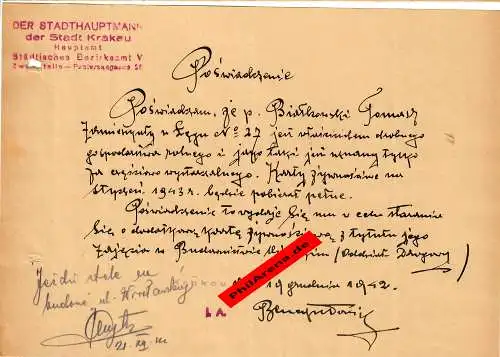 DER STADTHAUPTMANN
der Stadt Krakau
Hauptamt
Städtisches Bezirksamt V
Poświadczenie
Poświadczam, że p. Białkowski Tomasz
zamieszkały w Łęgu № 27 jest właścicielem drobnego
gospodarstwa rolnego i jako taki jest uznany tylko
za częściowo wystarczalnego. Karty żywnościowe na
styczeń 1943 r. będzie pobierał pełne.
Poświadczenie to wydaje się mu w celu starania
się o dodatkową kartę żywnościową z tytułu jego
zajęcia w Budownictwie (Oddział Drogowy)
19 grudnia 1942.
Jeździ stale na
budowę ul.
21. XII
PhilArena.de